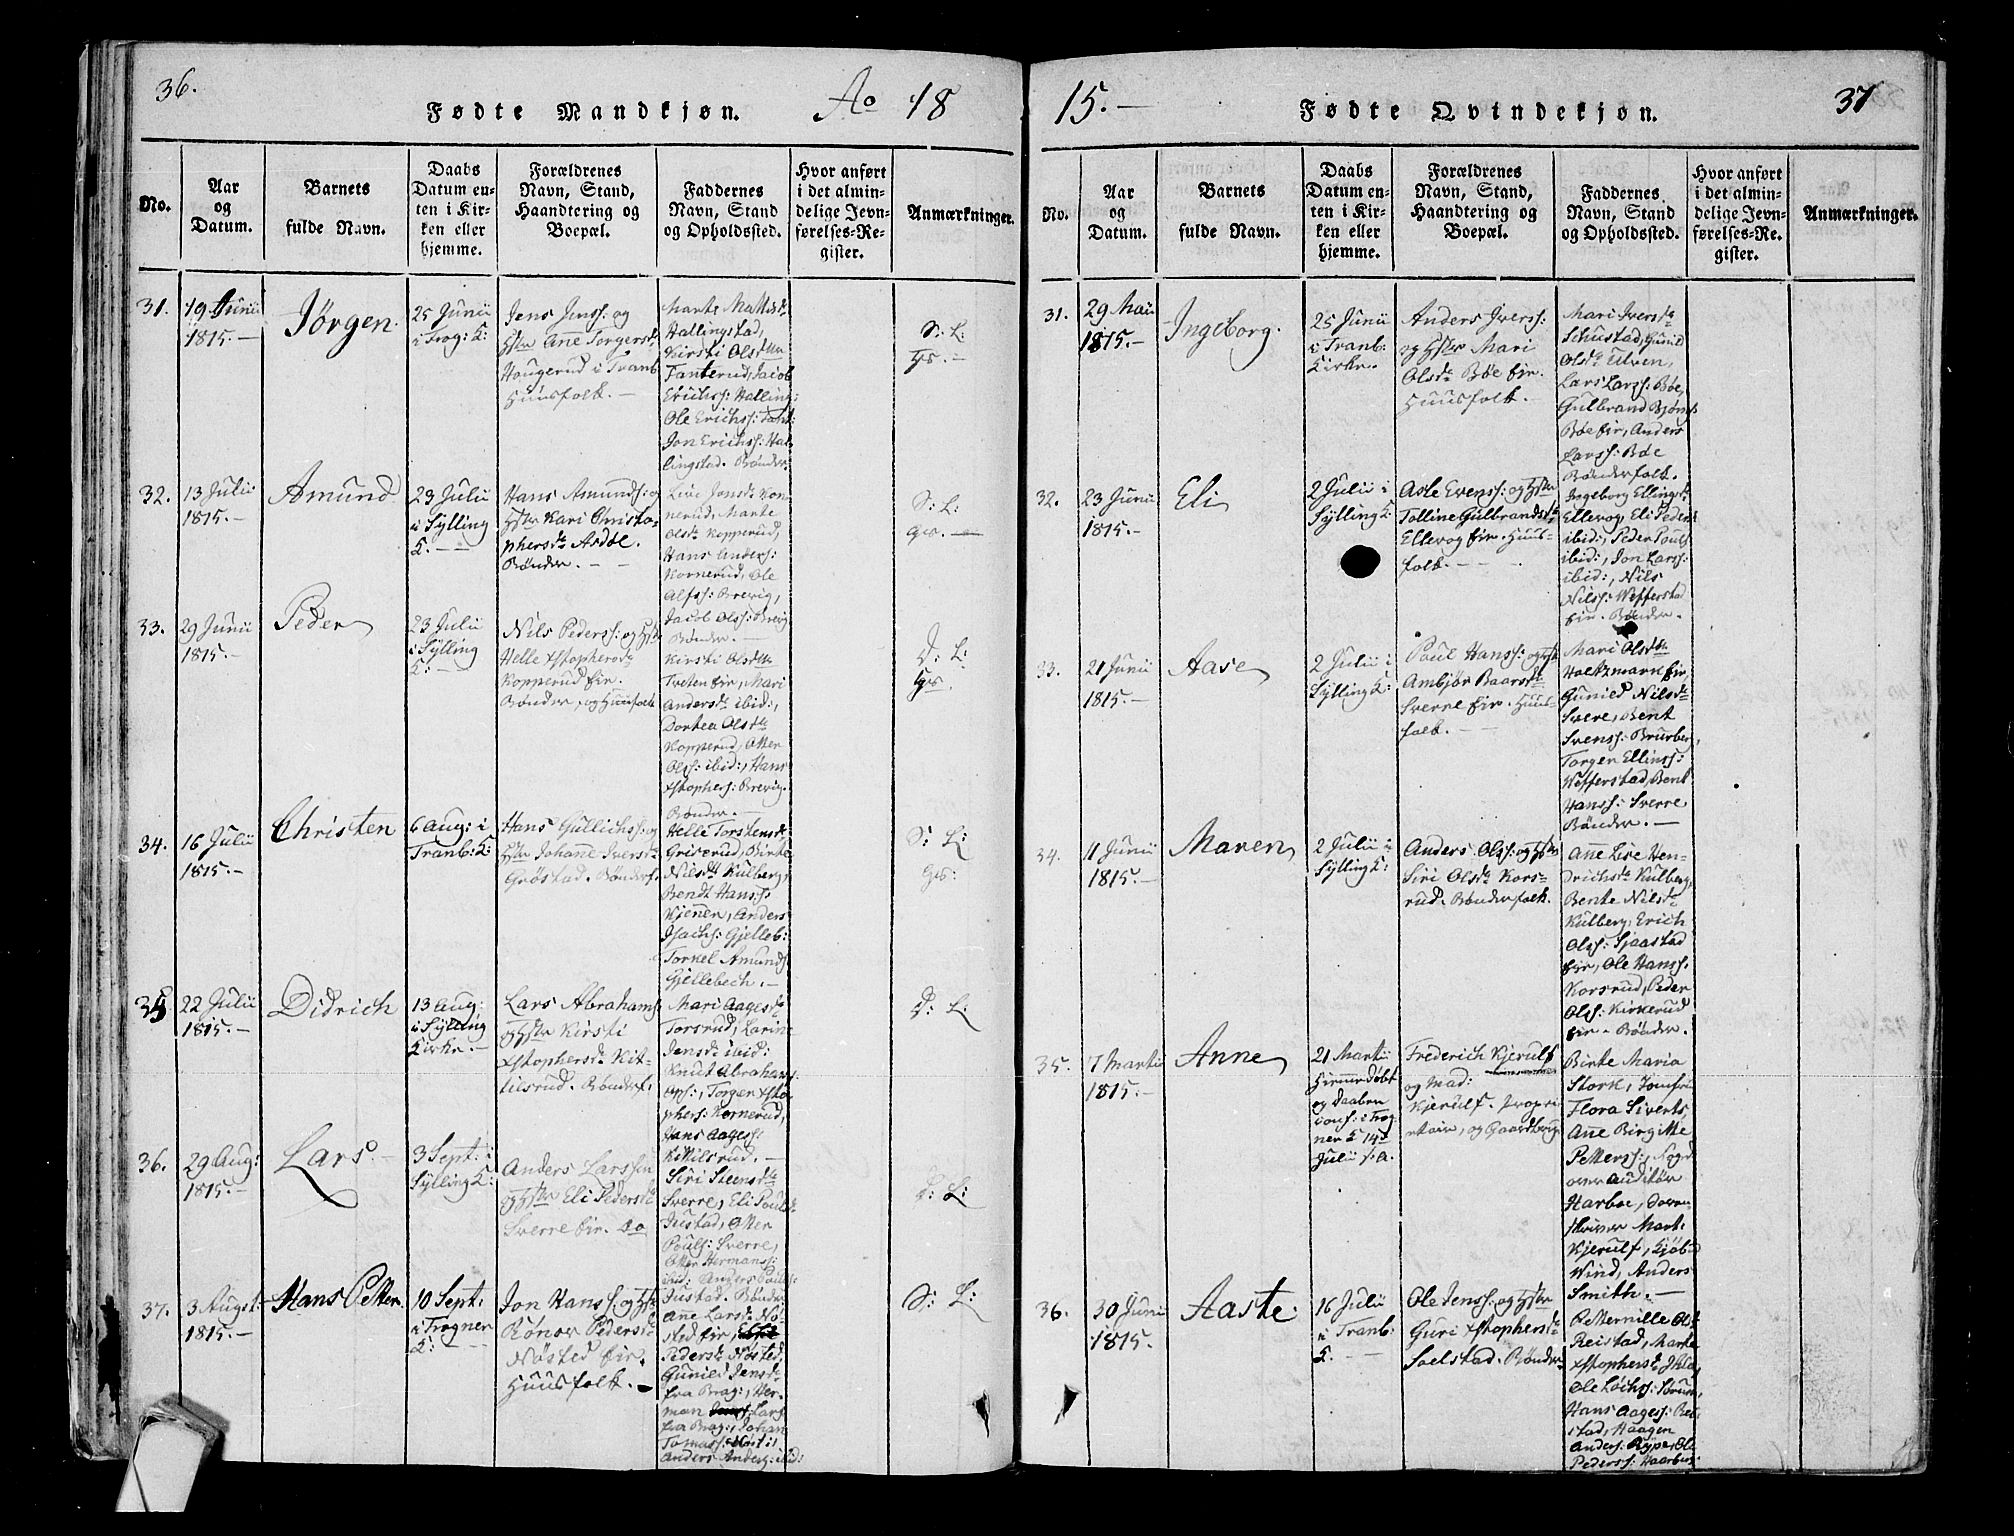 36.
Fødte Mandkjøn.
Ao 18
No.
Aar
og
Datum.
Barnets
fulde Navn.
Daabs
Datum en-
ten i Kir-
ken eller
hjemme.
Forældrenes
Navn, Stand,
Haandtering og
Boepæl.
Faddernes
Navn, Stand
og Opholdssted.
Hvor anført
i det almin-
delige Jevn-
førelses-Re-
gister.
Anmærkninger.
31.
19 Junii
1815.—
Jörgen.
25 Junii
i Trog: K:
Jens Jenss: og
Hstr Anne Torgersd:
Hougerud i Tranb:
Huusfolk.—
Marte Mattisd:
Hallingstad,
Kirsti Olsdttr
Fanterud, Jacob
Erichss: Halling:
Ole Erichss: Fant:
Jon Erichss: Hal-
lingstad. Bönder.
S: L:
32.
13 Julii
1815.—
Amund
23 Julii
i Sylling
K.—
Hans Amunds: og
Hstr Kari Christo-
phersdr Asdöl.
Bönder.—
Live Jensdr Kor-
nerud, Marte
Olsdr Kopperud,
Hans Anders:
Kornerud, Ole
Alfss: Brevig,
Jacob Olss: Brevig
Bönder.—
S: L:
33.
29 Junii
1815.—
Peder
23 Julii
i Sylling
K:—
Nils Pederss: og Hstr
Helle Xstophersdr
Kopperud Eir.
Bönder, og Huusfolk
Kirsti Olsdttr
Treten Eir, Mari
Andersdr ibid:,
Dortea Olsdr
Kopperud, Otter
Olss: ibid:, Hans
Xstophers: Brevig.
Bönder.—
D: L:
34.
16 Julii
1815.—
Christen
6 Aug: i
Tranb: K:
Hans Gullichss: og
Hstr Johane Iversdr
Gröstad. Bönderf.
Helle Torstensdr
Griserud, Birte
Nilsdr Kulberg,
Bendt Hanss:
Kjener, Anders
Isachs: Gjelleb:
Torkel Amunds:
Gjellebech.—
S: L:
35
22 Julii
1815.—
Didrich
13 Aug:
i Sylling
Kirke.—
Lars Abrahams:
og Hstr Kirsti
Xstophersdr Kit-
tilsrud. Bönderf.
Mari Aagesdr
Torsrud, Karin
Jensdr ibid:
Knut Abrahams:
Ops:, Torger Xsto-
phers: Kornerud,
Hans Aagess:
Kittilsrud.—
D: L:
36.
29 Aug:
1815.—
Lars.—
3 Sept: i
Sylling K:
Anders Larssen
og Hstr Eli Pedersdr
Sverre Eir. do
Siri Steensdr
Sverre, Eli Poulsdr
Justad, Otter
Pouls: Sverre,
Otter Hermanss:
ibid: Anders Pouls:
Justad. Bönder
D: L:
37.
3 August
1815.—
Hans Petter.
10 Sept:
i Trogner
K:—
Jon Hanss: og Hstr
Rönov Pedersdr
Nösted Eir.
Huusfolk.—
Anne Larsdr Nö-
sted Eir,
Pedersdr Nösted,
Gunild Jensdr
fra Brag:, Her-
man Lars
fra Brag:, Johan
Tomass:
Anders Anders: ibid:
S: L:
15.—
Fødte Qvindekjøn.
37
No.
Aar
og
Datum.
Barnets
fulde Navn.
Daabs
Datum en-
ten i Kir-
ken eller
hjemme.
Forældrenes
Navn, Stand,
Haandtering og
Boepæl.
Faddernes
Navn, Stand
og Opholdssted.
Hvor anført
i det almin-
delige Jevn-
førelses-Re-
gister.
Anmærkninger.
31.
29 Maii
1815.—
Ingeborg.
25 Junii
i Tranb:
Kirke.
Anders Iverss:
og Hstr Mari
Olsdr Böe Eir.
Huusfolk.—
Mari Iversdr
Schustad, Gunil
Olsdr Ulven,
Lars Larss: Böe,
Gulbrand Björns:
Böe Eir, Anders
Larss: Böe
Bönderfolk.—
32.
23 Junii
1815.—
Eli
2 Julii i
Sylling K
Asle Evenss: og Hstr
Tolline Gulbrandsdr
Ellevog Eir. Huus-
folk.—
Ingeborg Ellingsdr
Ellevog, Eli Peders:
ibid:, Peder Pouls:
ibid:, Jon Larss:
ibid:, Nils
Nilss: Wefferstad
Eir. Bönder.
33.
21 Junii
1815.—
Aase
2 Julii i
Sylling K:
Poul Hanss: og Hstr
Ambjör Baarsdr
Sverre Eir. Huus-
folk.—
Mari Olsdttr
Holtzmark Eir,
Gunild Nilsdr
Svere, Bent
Svenss: Brurberg,
Torger Ellinss:
Wefferstad, Bent
Hanss: Sverre
Bönder.—
34.
11 Junii
1815.—
Maren
2 Julii i
Sylling K:
Anders Olss: og Hstr
Siri Olsdr Kors-
rud. Bönderfolk.
Anne Lise Hen-
drichsdr Kulberg,
Bente Nilsdr
Kulberg, Erich
Olss: Sjaastad
Eir, Ole Hanss:
Korsrud, Peder
Olss: Kirkerud
Eir. Bönder.
35.
7 Martii
1815.—
Anne
21 Martii
Hiemmedöbt
og Daaben
conf: i Trog
ner K 14de
Julii s.a.
Frederich Kjerulf
og Mad:
Kjerulf. Propri-
etair, og Gaardbrug
Birte Maria
Stork, Jomfru
Flora Siverts,
Anne Birgitte
Petterss:,
over Auditör
Harboe, Soren-
skriver Mart:
Kjerulf, Kjöb
Wind, Anders
Smith.—
36.
30 Junii
1815.
Aaste.
16 Julii
i Tranb:
K.—
Ole Jenss: og Hstr
Guri Xstophersdr
Solstad. Bönder
Petternille Ols
Reistad, Marte
Xstophersdr
Ole
Hans Aagess: Rei-
stad, Haagen
Anders: Ryper, Ole
Pederss: